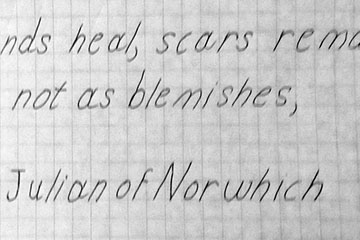 nds heal, scars rema
not as blemishes,
Julian of Norwhich